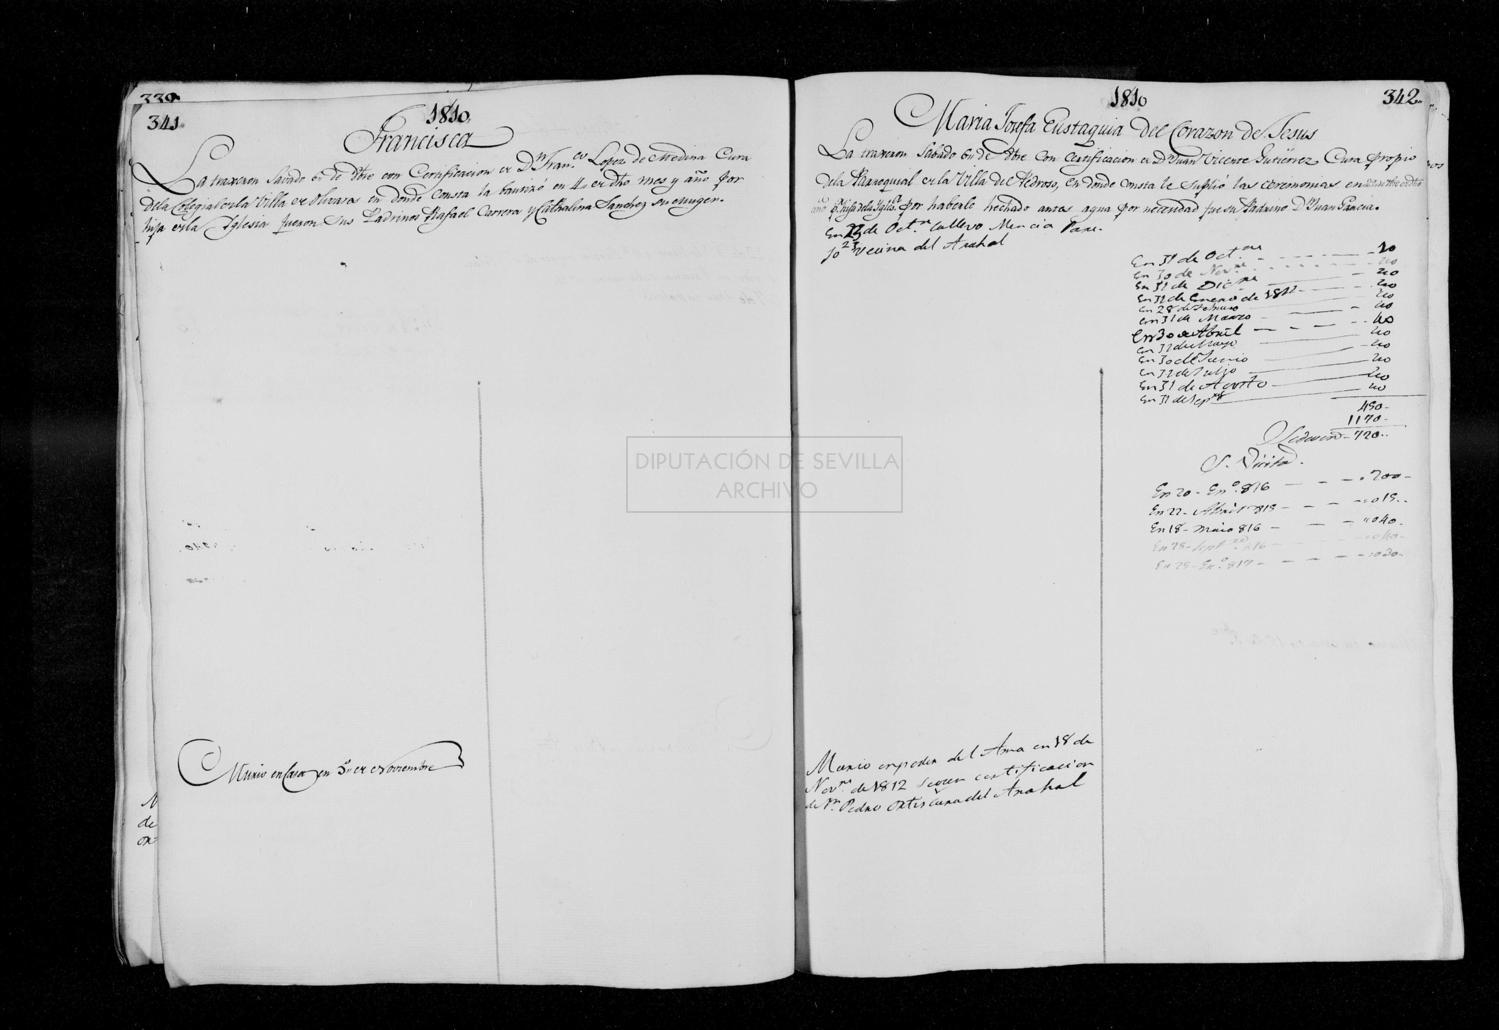 339
341
1810
Francisca
La traxeron Savado 6 de 8bre con Certificacion de Dn Franco Lopez de Medina Cura
de la Colegial de la Villa de Olivares en donde consta la bautizó en 4 de dho mes y año por
hija de la Yglesia fueron sus Padrinos Rafael Carrera y Cathalina Sanchez su muger.
Murio en Casa en 3 de Noviembre
1810
342
Maria Josefa Eustaquia del Corazon de Jesus
La traxeron Sabado 6 de 8bre con certificacion de D Juan Vicente Gutierrez Cura propio
de la Parroquial de la Villa del Pedroso, en donde consta le suplió las ceremonias en
año hija de la Yglª por haberle hechado antes agua por necesidad fue su Padrino D Juan Garcia.
En 23 de Octre la llevo Mencia
vecina del Arahal
En 31 de Octre 20
En 30 de Nove 40
En 31 de Dicre 40
En 31 de Enero de 1812 40
En 28 de Febrero 40
En 31 de Marzo 40
En 30 de Abril 40
En 31 de Mayo 40
En 30 de Junio 40
En 31 de Julio 40
En 31 de Agosto 40
En 31 de Sepre 40
450
1170
720
S. Visita
En 20 Eno 816 200
En 22 Abril 815 015
En 18 Maio 816 040
En 25 Sept 816 040
En 25 Eno 817 020
Murio en poder del Ama en 18 de
Nove de 1812 segun certificacion
de Dn Pedro Ortis Cura del Arahal
DIPUTACIÓN DE SEVILLA
ARCHIVO